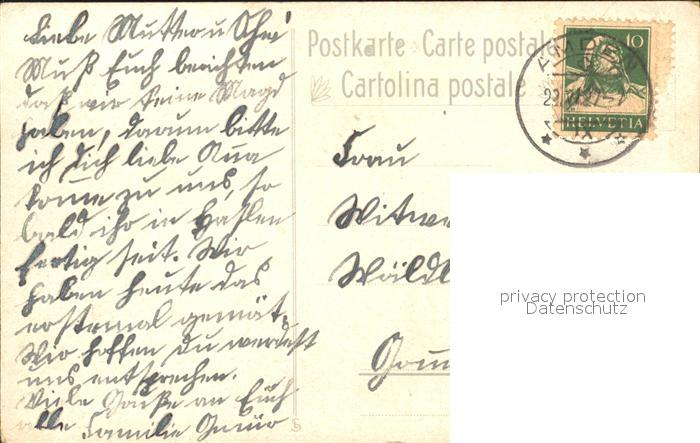 Liebe Mutter u
Muß Euch berichten
daß wir keine Magd
haben, darum bitte
ich dich liebe
komme zu uns, so
bald ihr in Haslen
fertig seit. Wir
haben heute das
erstemal gemät.
Wir hoffen du werdest
uns entsprechen.
Viele Grüße an Euch
alle Familie
Postkarte Carte postale
Cartolina postale
10
HELVETIA
Frau
Witwe
privacy protection
Datenschutz